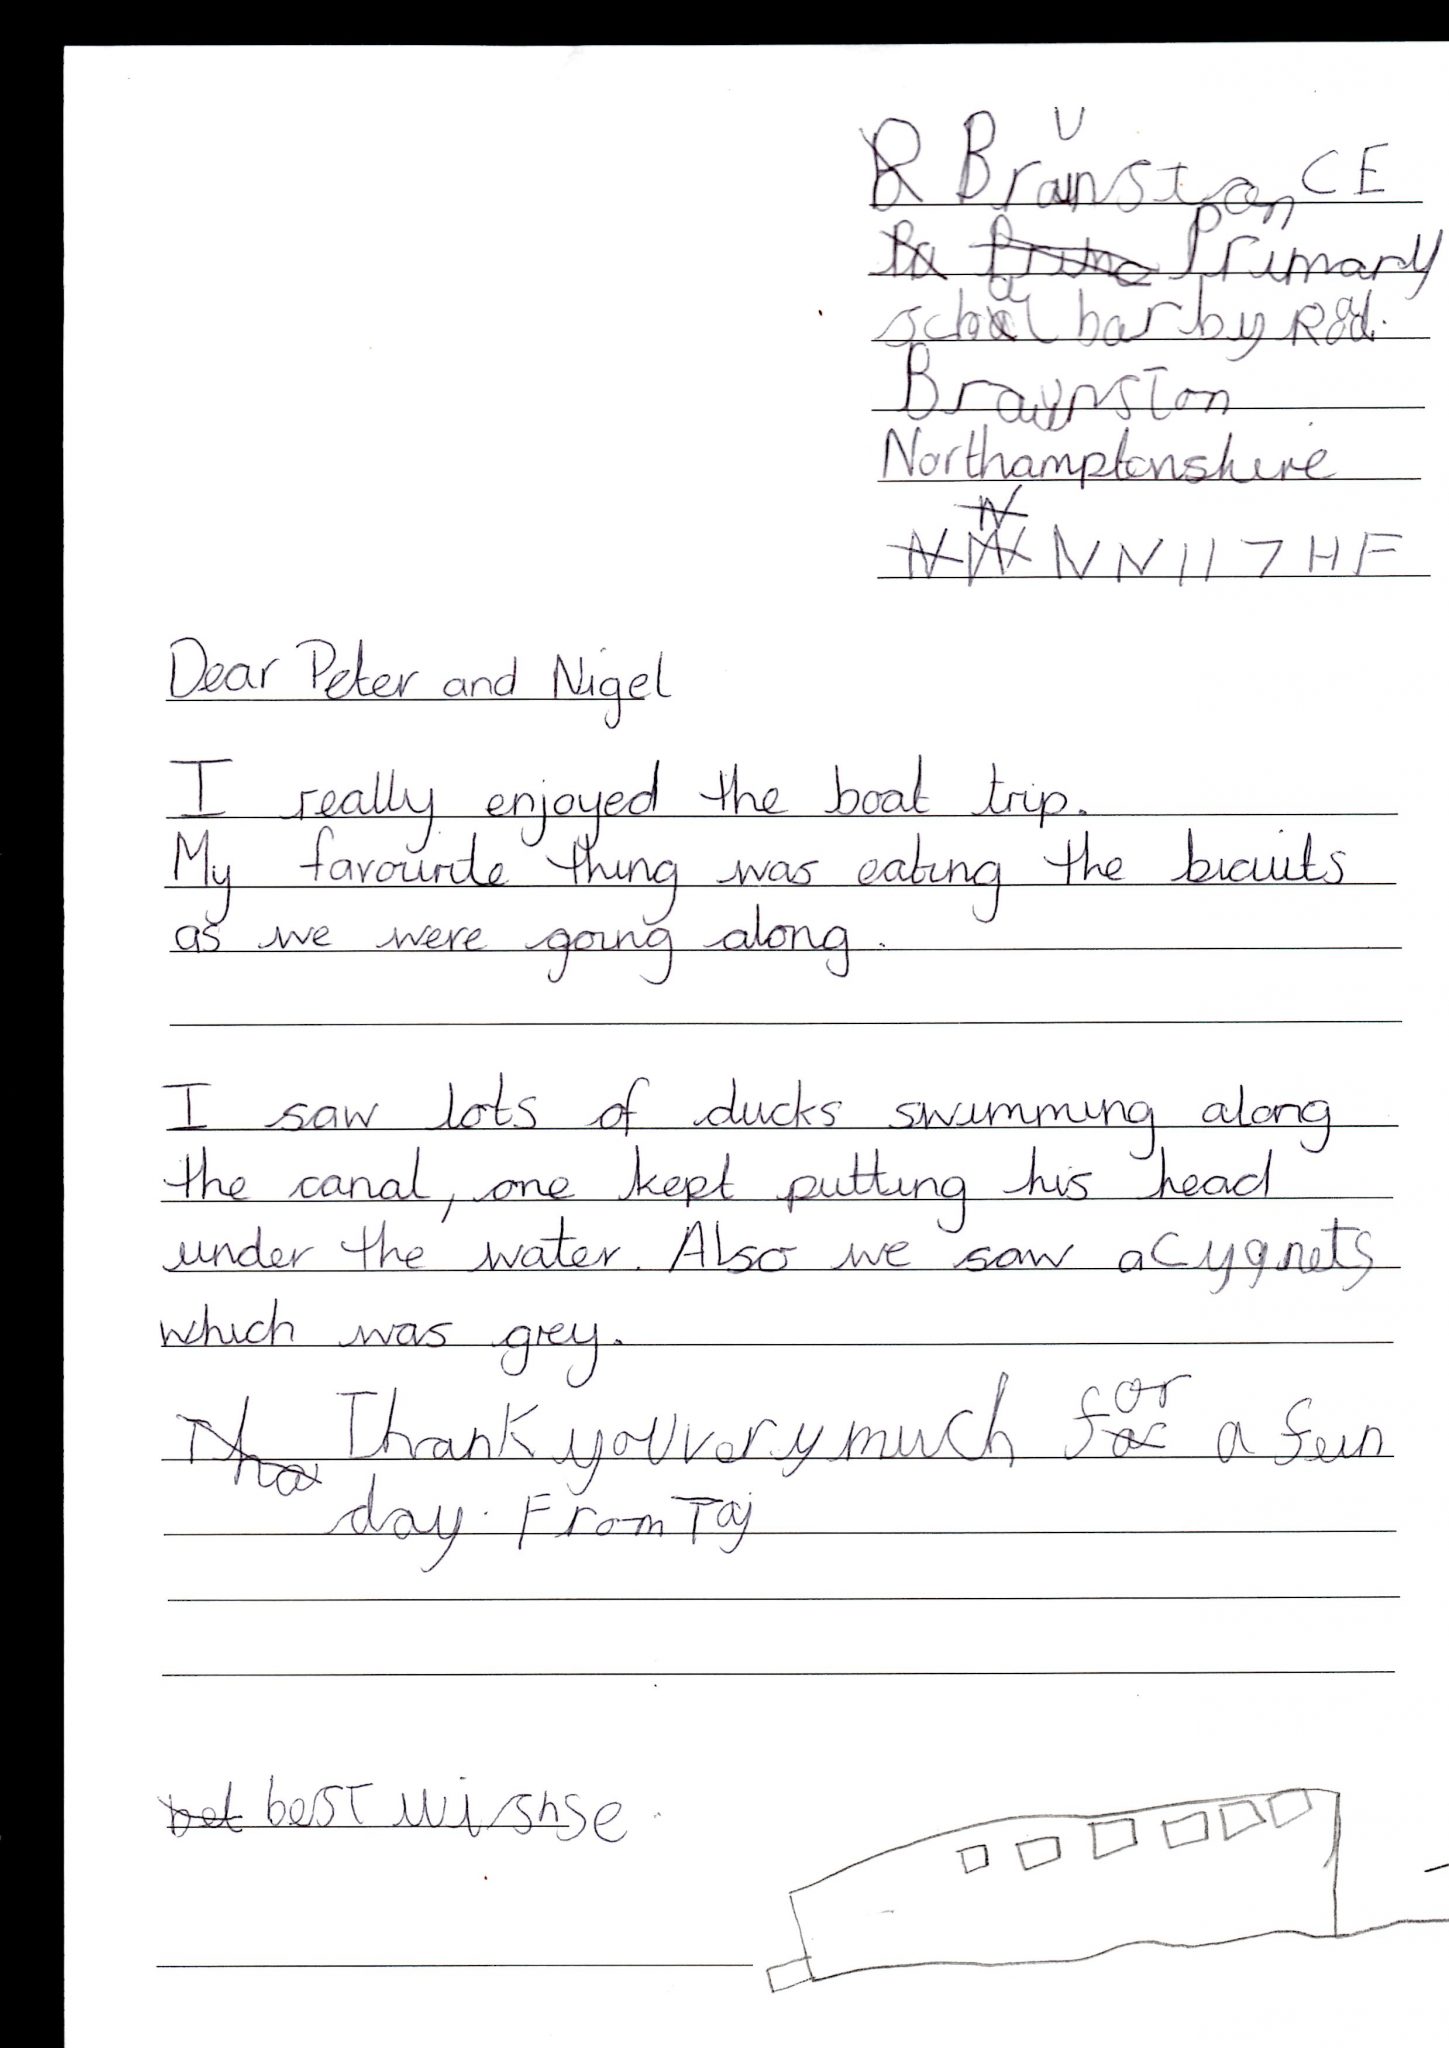 Braunston CE
Primary
school barby Road.
Braunston
Northamptonshire
NN11 7HF
Dear Peter and Nigel
I really enjoyed the boat trip.
My favourite thing was eating the bicuits
as we were going along.
I saw lots of ducks swimming along
the canal, one kept putting his head
under the water. Also we saw a cygnets
which was grey.
Thank you very much for a fun
day. From Taj
best wishse.